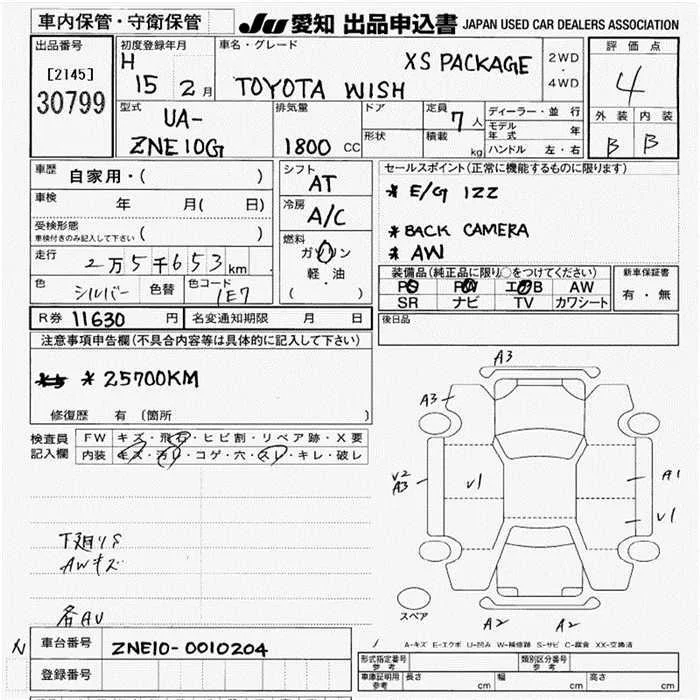 車内保管・守衛保管 JU 愛知 出品申込書 JAPAN USED CAR DEALERS ASSOCIATION
出品番号 初度登録年月 車名・グレード 評価点
[2145] H 15 2月 TOYOTA WISH XS PACKAGE 2WD・4WD 4
30799 型式 排気量 ドア 定員 7人 ディーラー・並行 外装 内装
UA- モデル年式 年 B B
ZNE10G 1800 CC 形状 積載 kg ハンドル 左・右
車歴 自家用・( ) シフト AT セールスポイント(正常に機能するものに限ります)
車検 年 月( 日) 冷房 A/C * E/G 1ZZ
受検形態 ( )
車検付きのみ記入して下さい
* BACK CAMERA
走行 2万5千653km 燃料 ガソリン * AW
軽・油
( )
色 シルバー 色替 色コード 1E7
装備品(純正品に限り○をつけてください) 新車保証書
PS PW エアB AW 有・無
SR ナビ TV カワシート
R券 11630 円 名変通知期限 月 日 後日品
注意事項申告欄(不具合内容等は具体的に記入して下さい)
* 25700KM
修復歴 有 (箇所 )
検査員記入欄 FW キズ・飛石・ヒビ割・リペア跡・X要
内装 キズ・汚レ・コゲ・穴・スレ・キレ・破レ
A3
A3
V2
A3
V1
A1
V1
下廻りS
AWキズ
各AU
スペア
A2 A2
N 車台番号 ZNE10-0010204
登録番号
A-キズ E-エクボ U-凹み W-補修跡 S-サビ C-腐食 XX-交換済
形式指定番号 参考 類別区分番号 参考
車庫証明用 参考 長さ cm 幅 cm 高さ cm